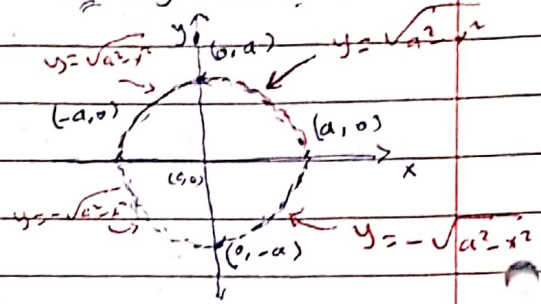 y
(0, a)
y = √a²-x²
y = √a²-x²
(-a, 0)
(a, 0)
x
(0,0)
y = -√a²-x²
y = -√a²-x²
(0, -a)